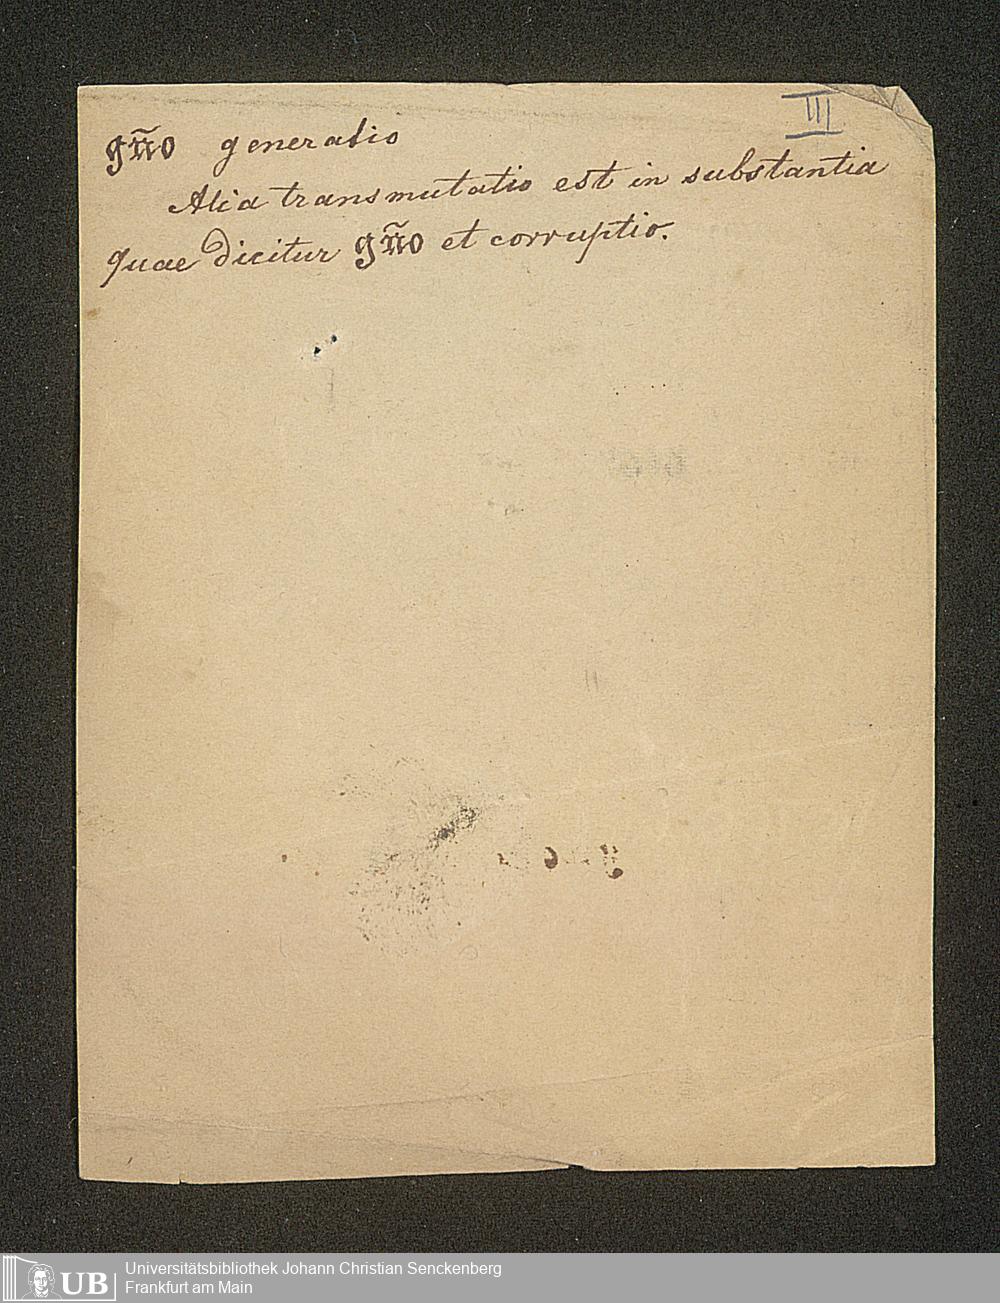 III
gn̄o generatio
Alia transmutatio est in substantia
quae dicitur gn̄o et corruptio.
UB
Universitätsbibliothek Johann Christian Senckenberg
Frankfurt am Main